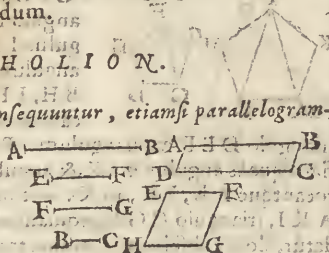 dum.
HOLION.
nsequuntur, etiamsi parallelogram-
A B A B
E F D C
F G E F
B C H G